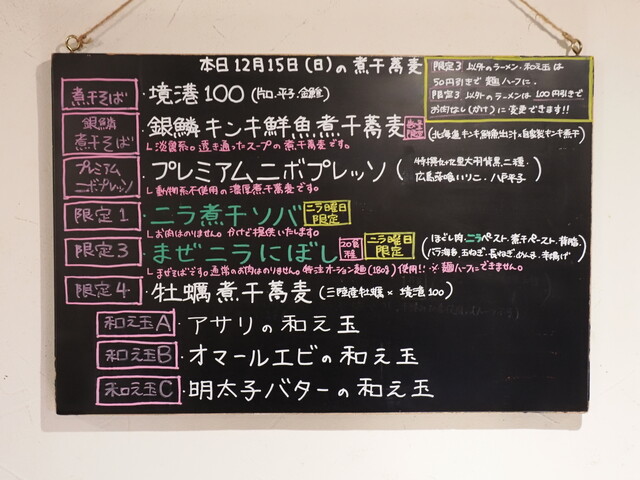 本日12月15日(日)の煮干蕎麦
限定3 以外のラーメン・和え玉は
50円引きで 麺ハーフに。
限定3 以外のラーメンは 100円引きで
お肉なし(かけ)に変更できます!!
煮干そば・境港100(片口・平子・
銀鱗煮干そば 銀鱗キンキ鮮魚煮干蕎麦 限定
(北海道キンキ鮮魚出汁×自家製キンキ煮干)
└淡麗系。透き通ったスープの煮干蕎麦です。
プレミアムニボプレッソ・プレミアムニボプレッソ(
広島 いりこ・八戸平子)
└動物系不使用の濃厚煮干蕎麦です。
限定1・ニラ煮干ソバ ニラ曜日限定
└お肉はのりません。かけで提供いたします。
限定3・まぜニラにぼし 20食 ニラ曜日限定
(ほぐし肉・ニラペースト・煮干ペースト・背脂・
バラ海苔・玉ねぎ・長ねぎ・めんま・
└まぜそばです。通常のお肉はのりません。特注オーション麺(180g)使用!! ※麺ハーフにできません。
限定4・牡蠣煮干蕎麦(三陸産牡蠣×境港100)
和え玉A・アサリの和え玉
和え玉B・オマールエビの和え玉
和え玉C・明太子バターの和え玉